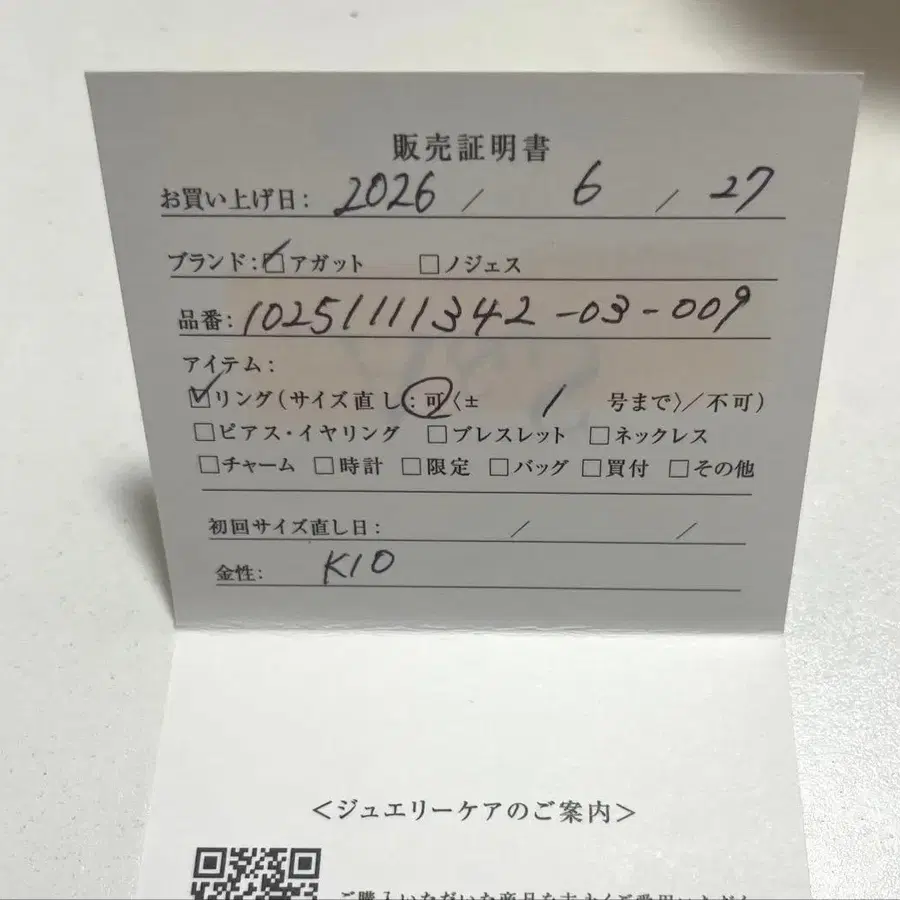 販売証明書
お買い上げ日: 2026 / 6 / 27
ブランド: ☑アガット □ノジェス
品番: 10251111342-03-009
アイテム:
☑リング(サイズ直し:可〈± 1 号まで〉/不可)
□ピアス・イヤリング □ブレスレット □ネックレス
□チャーム □時計 □限定 □バッグ □買付 □その他
初回サイズ直し日: / /
金性: K10
<ジュエリーケアのご案内>